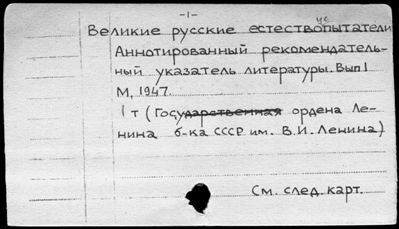 -1-
Великие русские естествоиспытатели
Аннотированный рекомендатель-
ный указатель литературы. Вып 1
М, 1947.
1 т (Государственная ордена Ле-
нина б-ка СССР им. В.И. Ленина)
См. след. карт.